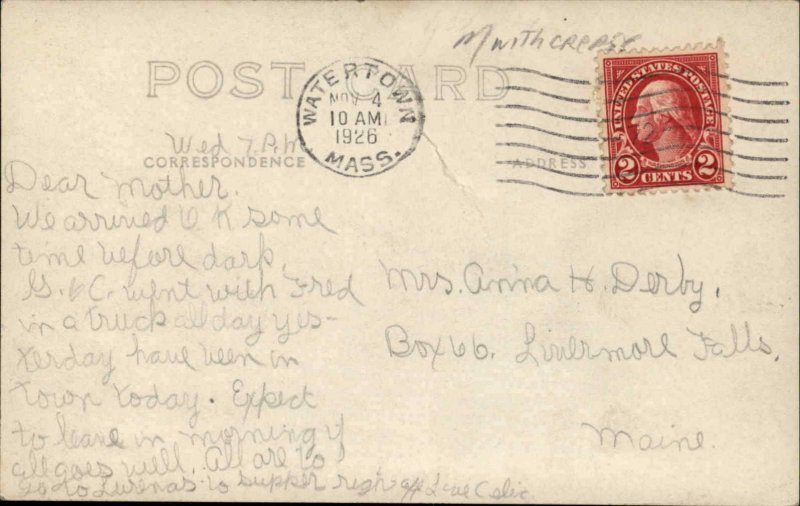 M with crease
POST CARD
WATERTOWN
NOV 4
10 AM
1926
MASS.
UNITED STATES POSTAGE
2 2
CENTS
Wed 7 P.M.
CORRESPONDENCE
ADDRESS
Dear Mother.
We arrived O K some
time before dark.
G. & C. went with Fred
in a truck all day yes-
terday have been in
Town today. Expect
to leave in morning if
all goes well. All are to
go to to supper right off Love
Mrs. Anna H. Derby.
Box 66. Livermore Falls.
Maine.